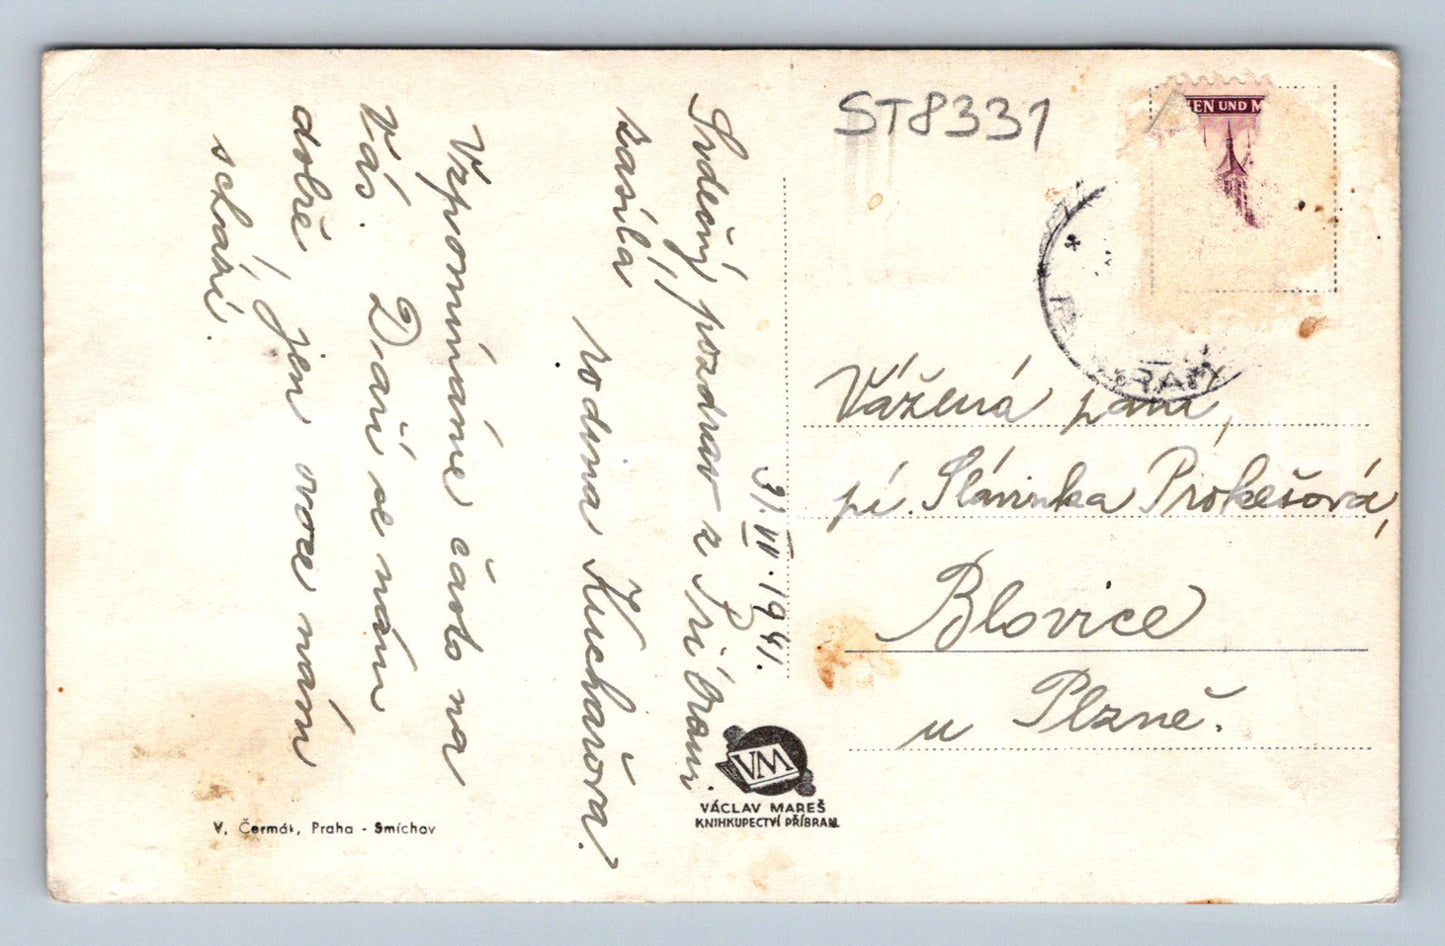 ST8331
EN UND M
Srdečný pozdrav z Příbrami
zasílá
rodina Kuchařova.
Vzpomínáme často na
Vás. Daří se nám
dobře, jen ovoce nám
schází.
31.VII.1941.
Vážená paní,
pí. Slávinka Prokešová,
Blovice
u Plzně.
VM
VÁCLAV MAREŠ
KNIHKUPECTVÍ PŘÍBRAM.
V. Čermák, Praha - Smíchov